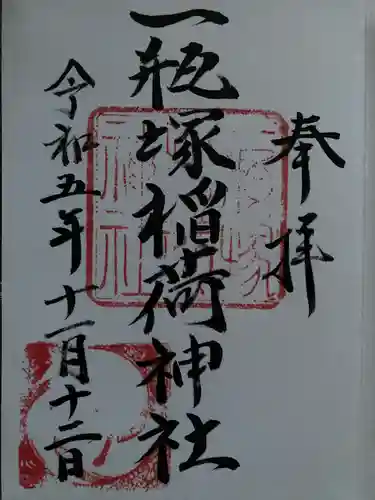 奉拝
一瓶塚稲荷神社
令和五年十一月十二日